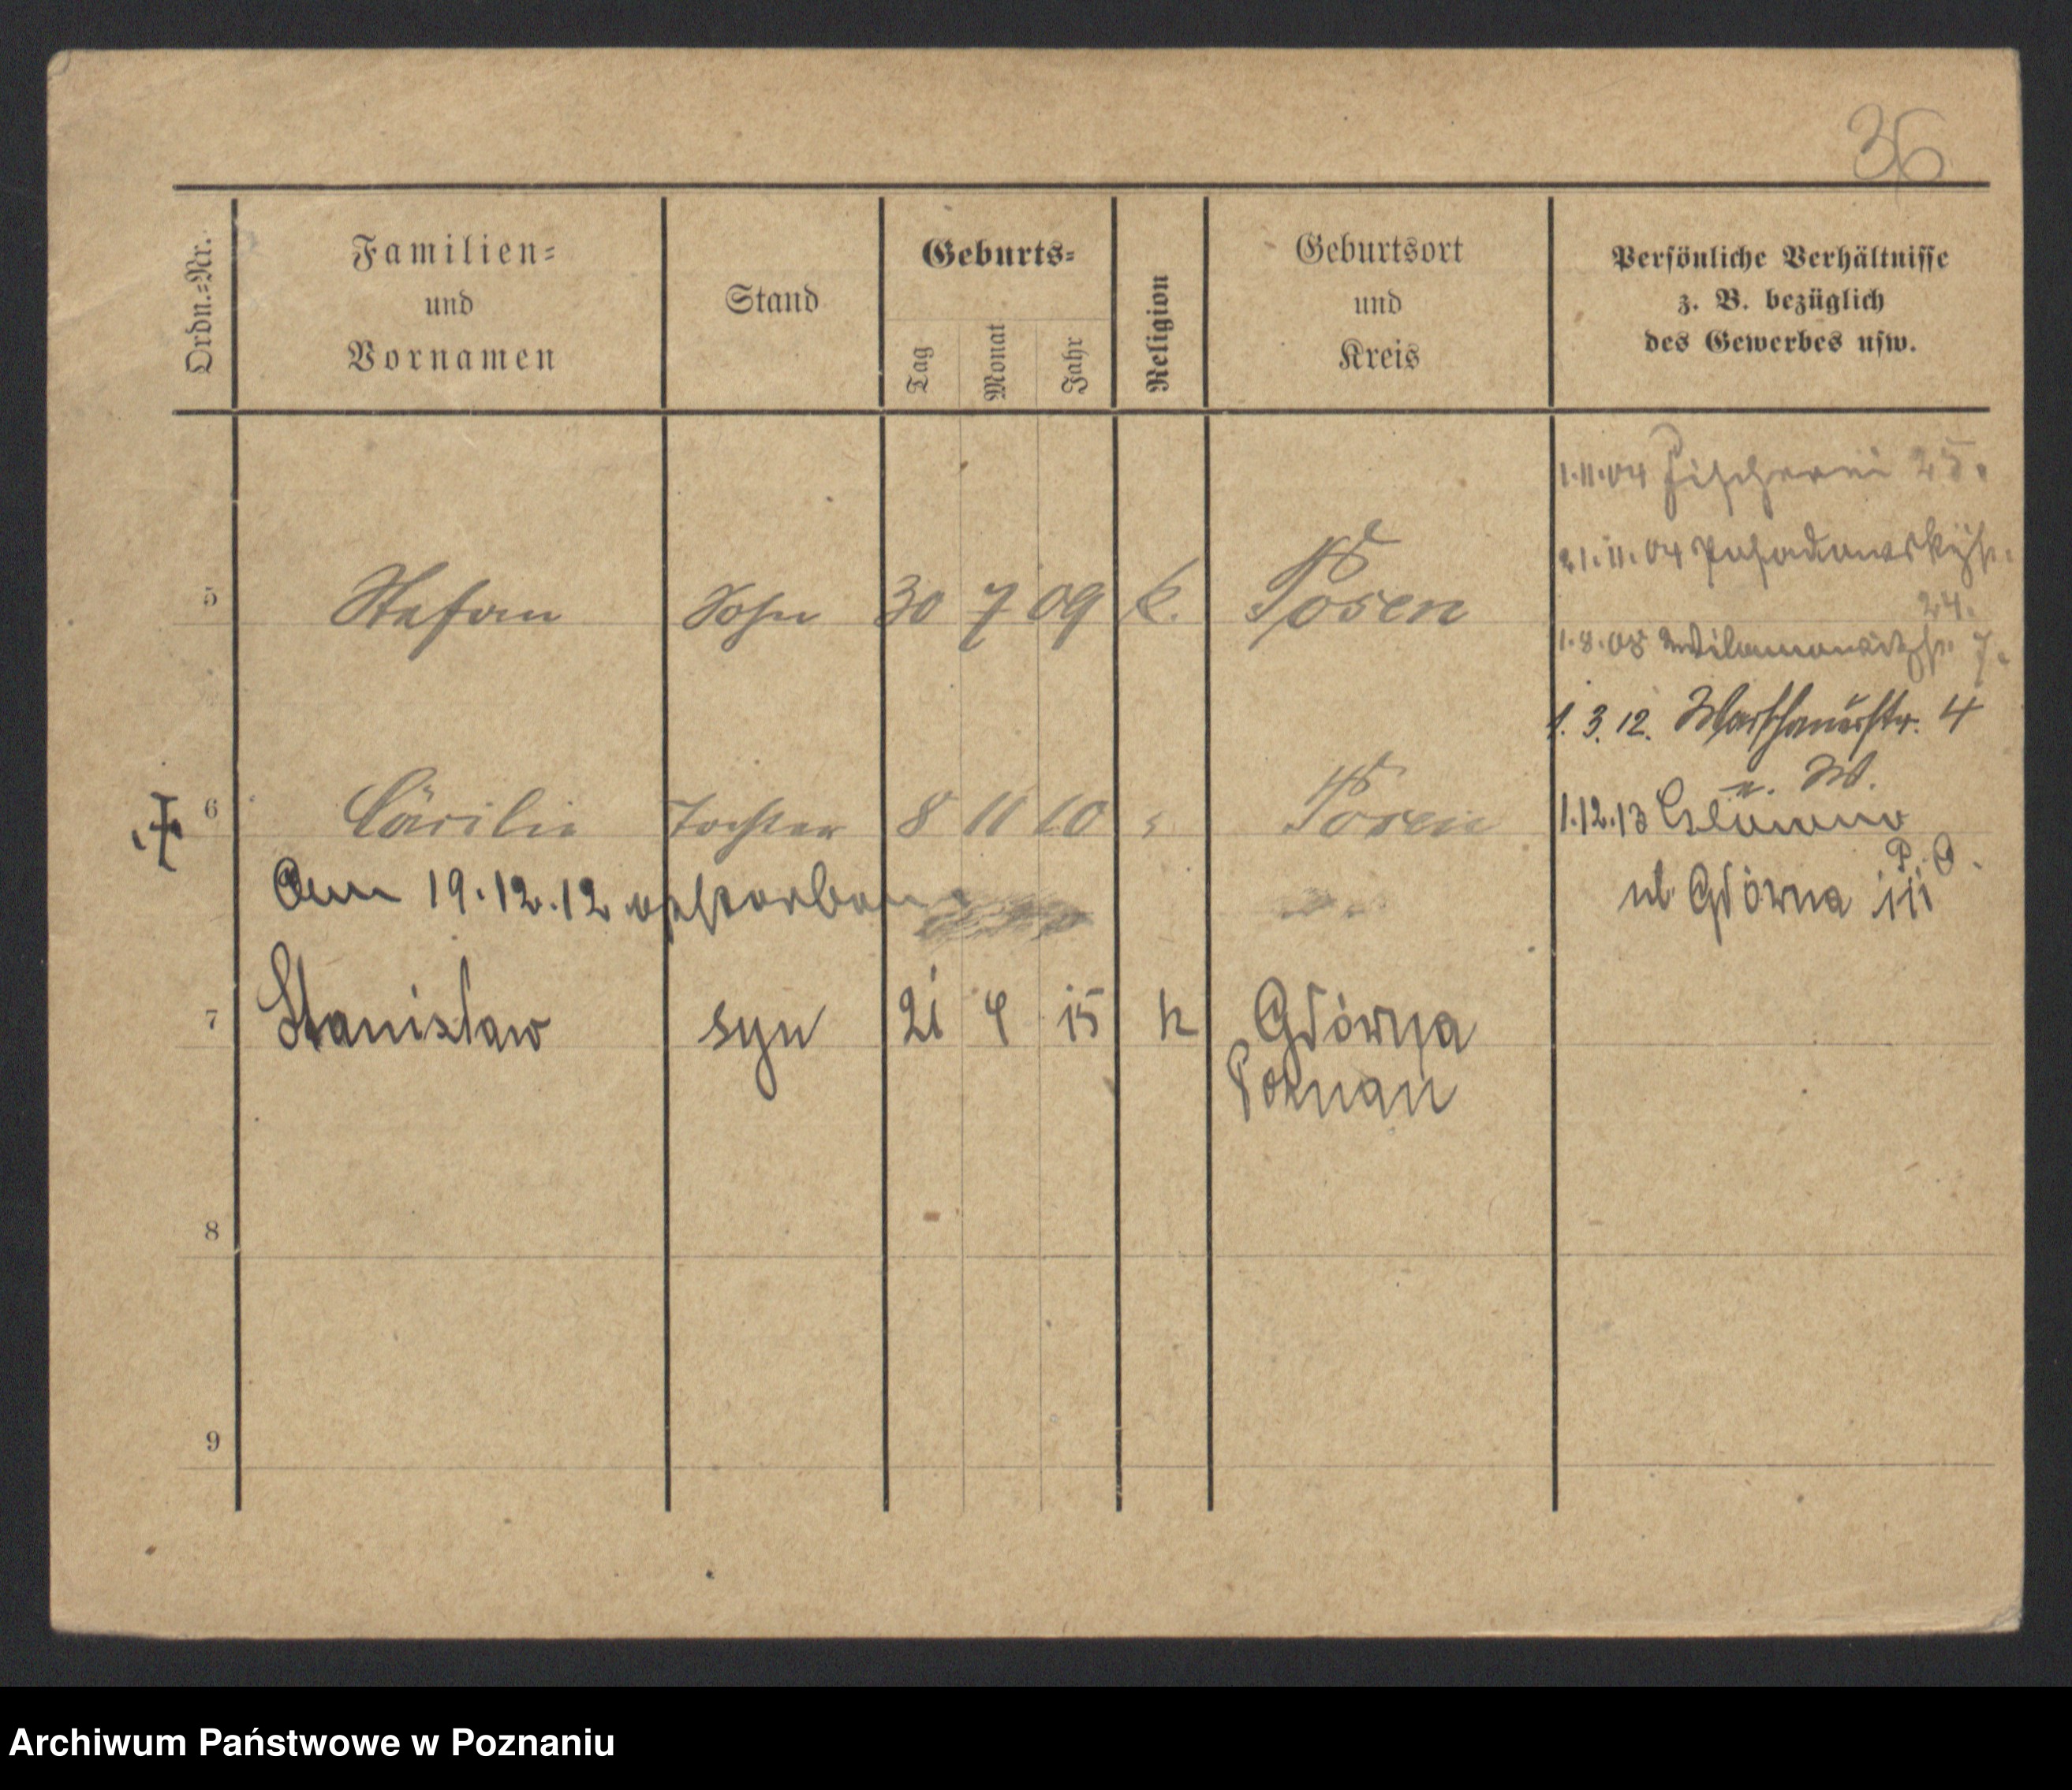 36
Ordn.=Nr.
Familien=
und
Vornamen
Stand
Geburts=
Tag
Monat
Jahr
Religion
Geburtsort
und
Kreis
Persönliche Verhältnisse
z. B. bezüglich
des Gewerbes usw.
1.11.04 Fischerei 25.
21.11.04 Posadowskystr.
24.
5 Stefan Sohn 30 7 09 k. Posen
1.8.08 Wilamowitzstr. 7.
1. 3. 12. Warschauerstr. 4
n. W.
6 Cäcilie Tochter 8 11 10 Posen
1.12.13 Glowno
P. O.
Am 19.12.12 verstorben
ul Główna 111
7 Stanisław syn 21 4 15 k Główna
Poznań
8
9
Archiwum Państwowe w Poznaniu